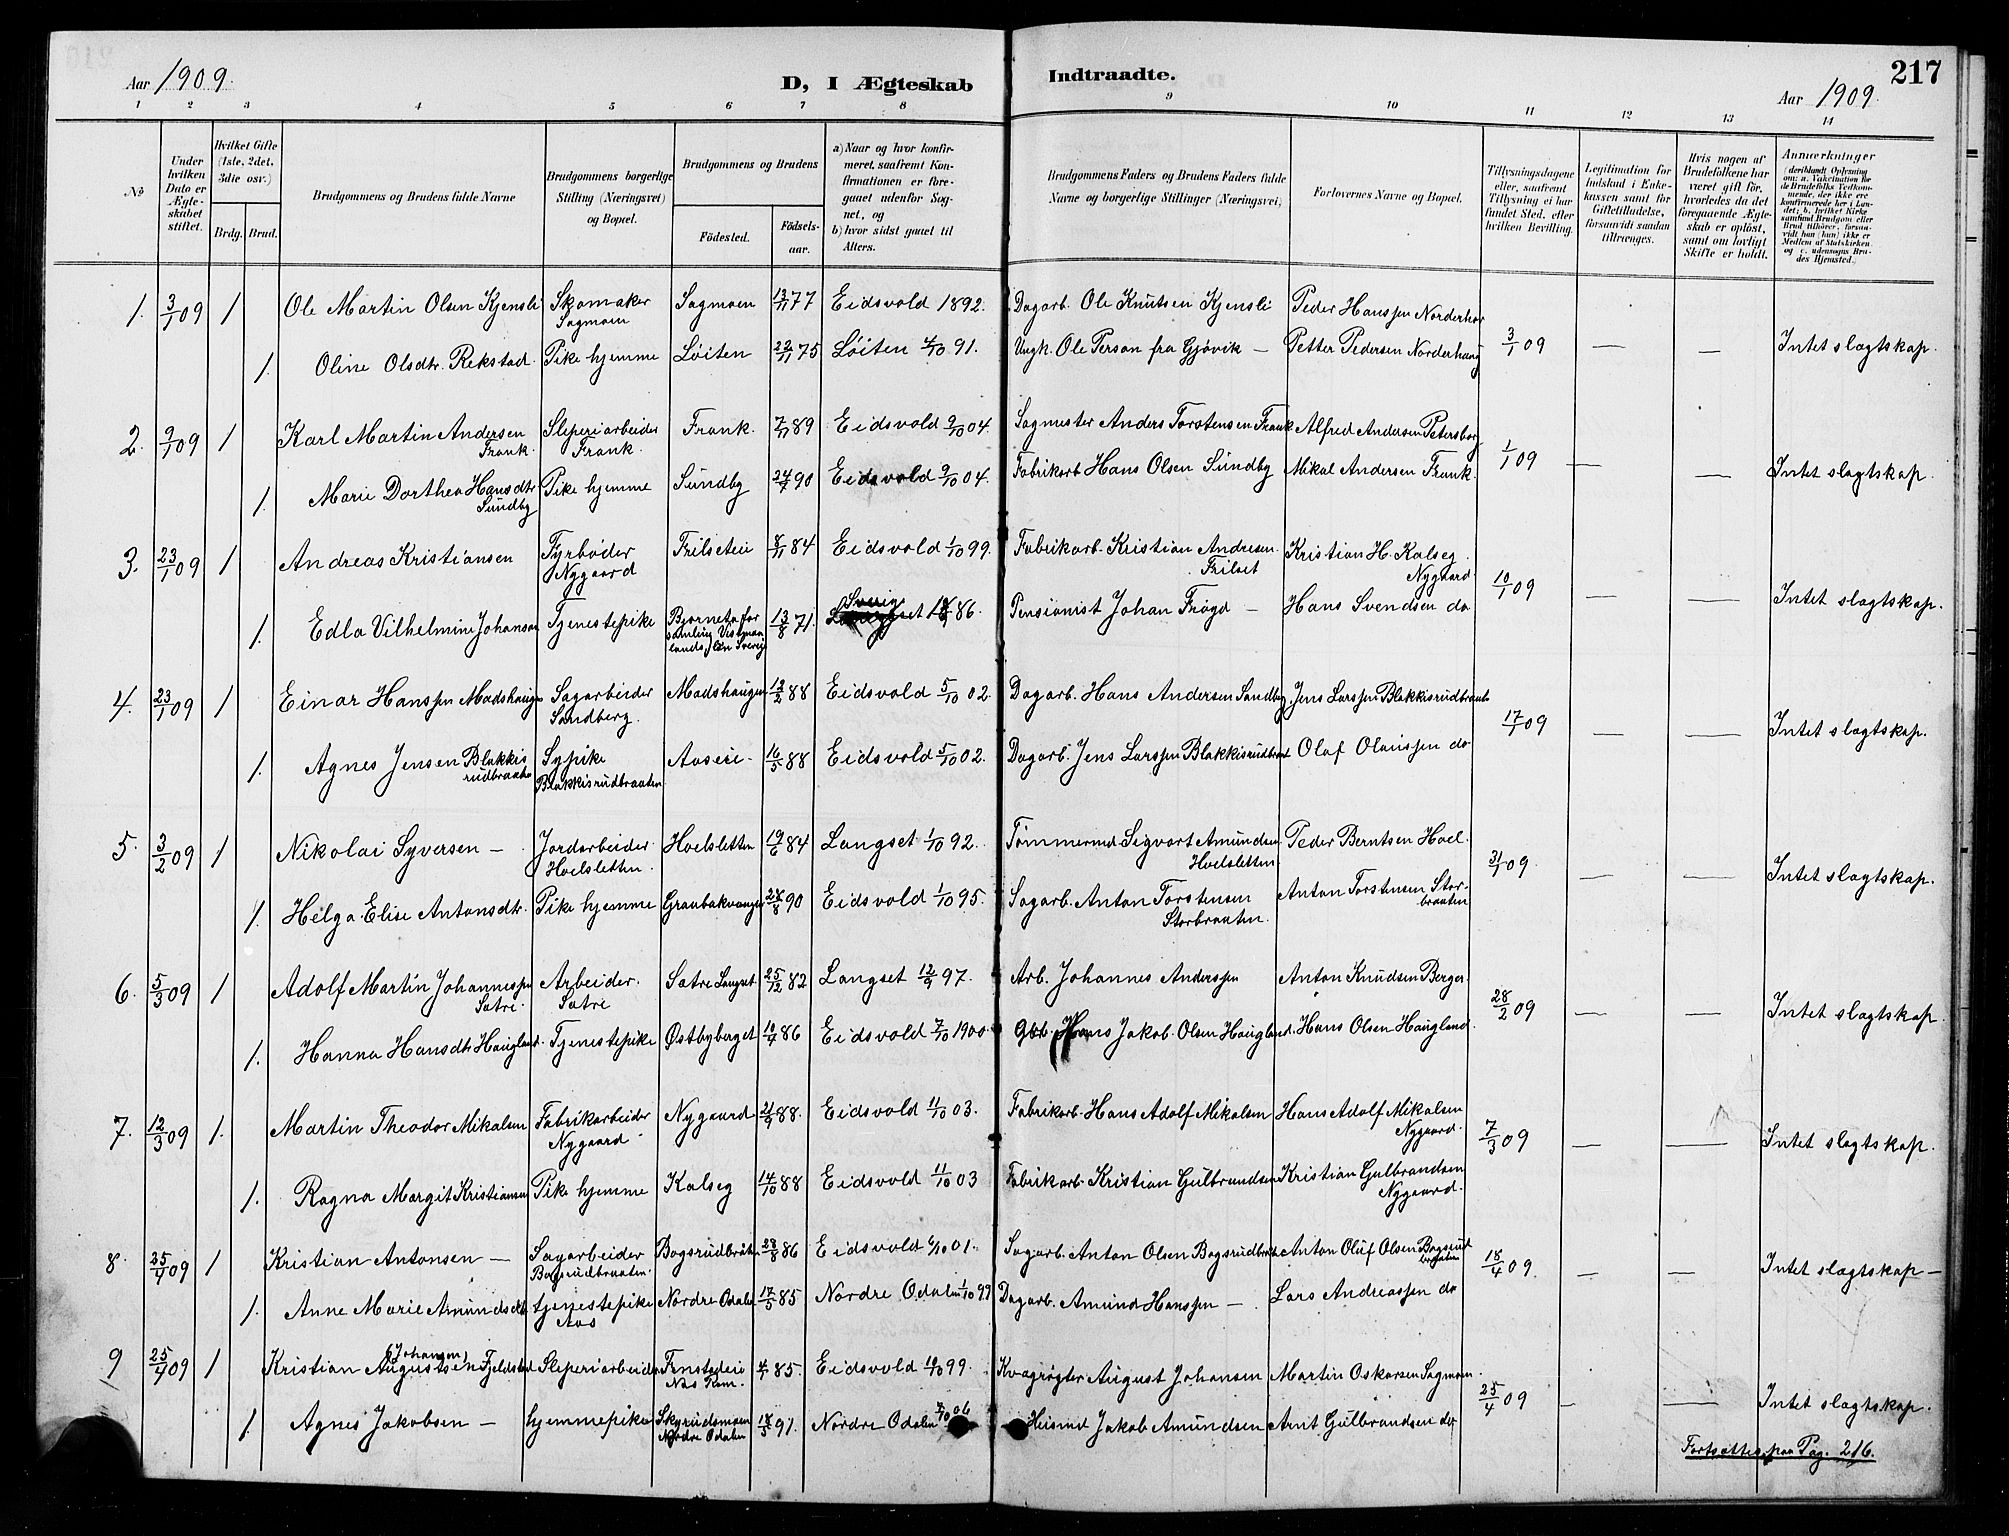 Aar 1909.
D, I Ægteskab
Indtraadte.
217
Aar 1909.
1 2 3 4 5 6 7 8 9 10 11 12 13 14
No
Under hvilken Dato er Ægteskabet stiftet.
Hvilket Gifte (1ste, 2det, 3die osv.)
Brdg. Brud.
Brudgommens og Brudens fulde Navne
Brudgommens borgerlige Stilling (Næringsvei) og Bopæl.
Brudgommens og Brudens
Fødested.
Fødselsaar.
a) Naar og hvor konfirmeret, saafremt Konfirmationen er foregaaet udenfor Sognet, og
b) hvor sidst gaaet til Alters.
Brudgommens Faders og Brudens Faders fulde Navne og borgerlige Stillinger (Næringsvei)
Forlovernes Navne og Bopæl.
Tillysningsdagene eller, saafremt Tillysning ei har fundet Sted, efter hvilken Bevilling.
Legitimation for Indskud i Enkekassen samt for Giftetilladelse, forsaavidt saadan tiltrænges.
Hvis nogen af Brudefolkene har været gift før, hvorledes da det foregaaende Ægteskab er opløst, samt om lovligt Skifte er holdt.
Anmerkninger
(deriblandt Oplysning om: a. Vakcination for de Brudefolks Vedkommende, der ikke ere konfirmerede her i Landet; b. hvilket Kirkesamfund Brudgom eller Brud tilhører, forsaavidt han (hun) ikke er Medlem af Statskirken og c. udensogns Brudes Hjemsted.)
1. 3/1 09 1 Ole Martin Olsen Kjensli Skomaker Sagmoen Sagmoen 13/11 77 Eidsvold 1892. Dagarb. Ole Knutsen Kjensli Peder Hanssen Norderhov
1. Oline Olsdtr. Rekstad Pike hjemme Løiten 22/11 75 Løiten 4/10 91. Ungk. Ole Person fra Gjøvik — Petter Pedersen Norderhaug 3/1 09 — — Intet slagtskap.
2. 9/1 09 1 Karl Martin Andersen Frank. Sliperiarbeider Frank. Frank. 7/11 89 Eidsvold 9/10 04. Sagmester Anders Torstensen Frank Alfred Andersen Petersborg
1. Marie Dorthea Hansdtr Sundby Pike hjemme Sundby 24/7 90 Eidsvold 9/10 04. Fabrikarb. Hans Olsen Sundby Mikal Andersen Frank. 1/1 09 — — Intet slagtskap.
3. 23/1 09 1 Andreas Kristiansen Fyrbøder Nygaard Frilseteie 8/11 84 Eidsvold 1/10 99. Fabrikarb. Kristian Andresen Frilset Kristian H. Kalseg Nygaard
1. Edla Vilhelmine Johanson Tjenestepike 13/8 71. Sverige 86. Pensionist Johan Frögd — Hans Svendsen do 10/1 09 — — Intet slagtskap.
4. 23/1 09 1 Einar Hanssen Madshaugen Sagarbeider Sandberg. Madshaugen 12/2 88 Eidsvold 5/10 02. Dagarb. Hans Andersen Sandberg. Jens Larssen Blakkisrudbraaten
1. Agnes Jensen Blakkisrudbraaten Sypike Blakkisrudbraaten Aaseie. 16/5 88 Eidsvold 5/10 02. Dagarb. Jens Larssen Blakkisrudbraat Olaf Olaussen do 17/1 09 — — Intet slagtskap.
5. 3/2 09 1 Nikolai Syversen — Jordarbeider Hoelsletten. Hoelsletten 19/6 84 Langset 1/10 92. Tømmermd Sigvart Amundsen Hoelsletten Peder Berntsen Hoel.
1. Helga Elise Antonsdtr. Pike hjemme Graubakvangen 28/8 90 Eidsvold 1/10 95. Sagarb. Anton Torstensen Storbraaten. Anton Torstensen Storbraaten 31/1 09 — — Intet slagtskap.
6. 5/3 09 1 Adolf Martin Johannessen Sætri. Arbeider. Sætri Sætri Langset. 25/12 82 Langset 12/9 97. Arb. Johannes Anderssen Anton Knudsen Berger.
1. Hanna Hansdtr Haugland. Tjenestepike Østbyberget 10/4 86 Eidsvold 7/10 1900. Gbr. Hans Jakob Olsen Haugland. Hans Olsen Haugland. 28/2 09 — — Intet slagtskap.
7. 12/3 09 1. Martin Theodor Mikalsen Fabrikarbeider Nygaard Nygaard 21/9 88. Eidsvold 11/10 03. Fabrikarb. Hans Adolf Mikalsen Hans Adolf Mikalsen Nygaard.
1. Ragna Margit Kristiansen Pike hjemme Kalseg 14/10 88 Eidsvold 11/10 03 Fabrikarb. Kristian Gulbrandsen Kristian Gulbrandsen Nygaard. 7/3 09 — — Intet slagtskap.
8. 25/4 09 1 Kristian Antonsen — Sagarbeider Bogsrudbraaten. Bogsrudbråten 28/8 86 Eidsvold 6/10 01. Sagarb. Anton Olsen Bogsrudbråt Anton Oluf Olsen Bogsrudbraaten
1. Anne Marie Amundsdtr. tjenestepike Aas Nordre Odalen 17/5 85 Nordre Odalen 1/10 99 Dagarb. Amund Hanssen — Lars Andreassen do 18/4 09. — — Intet slagtskap —
9 25/4 09 1 Kristian Augustsen (Johansen) Fjeldstad Sliperiarbeider Finstadeie Næs Rom. 4/1 85. Eidsvold 99. Kvægrøgter August Johansen Martin Oskarsen Sagmoen.
1. Agnes Jakobsen — hjemmepike Skyrudsmoen Nordre Odalen 18/5 91. Nordre Odalen 06 Heismd Jakob Amundsen Arnt Gulbrandsen do 25/4 09 — — Intet slægtskap.
Fortsættes paa Pag. 216.